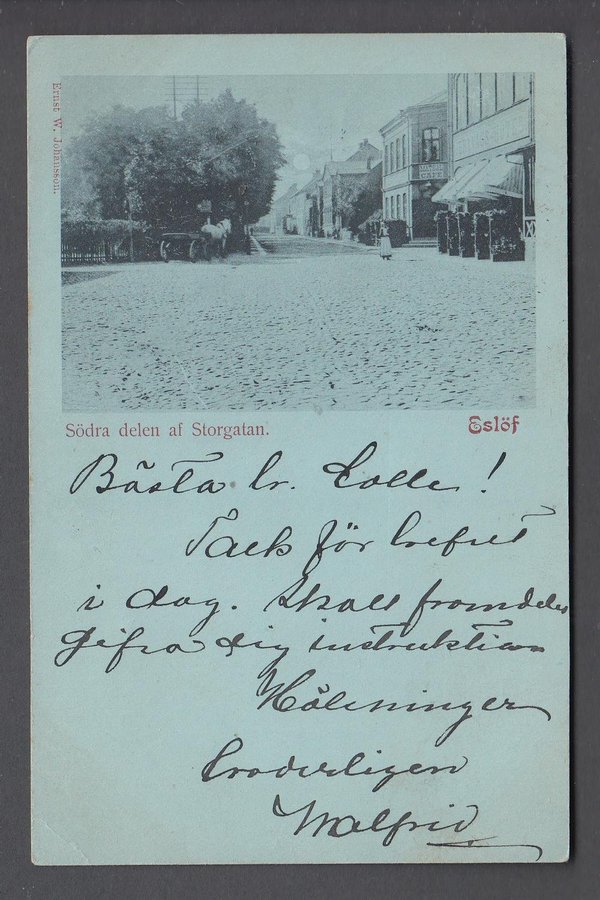 Ernst W. Johansson.
CAFÉ
Södra delen af Storgatan.
Eslöf
Bästa br. Calle!
Tack för brefvet
i dag. Skall framdeles
gifva dig instruktion
Hälsningar
broderligen
Walfrid